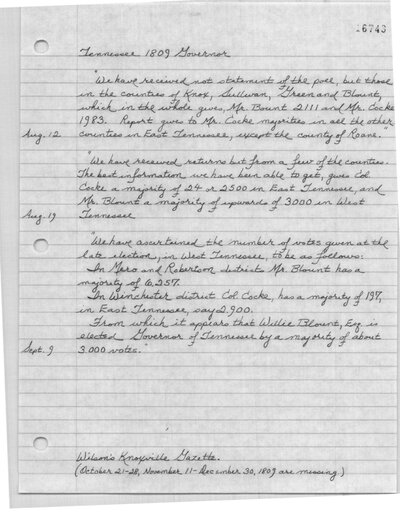 16743
Tennessee 1809 Governor
"We have received not statement of the poll, but those
in the counties of Knox, Sullivan, Green and Blount,
which in the whole gives, Mr. Bount 2111 and Mr. Cocke
1983. Report gives to Mr. Cocke majorities in all the other
Aug. 12 counties in East Tennessee, except the county of Roane."
"We have received returns but from a few of the counties.
The best information we have been able to get, gives Col.
Cocke a majority of 24 or 2500 in East Tennessee, and
Mr. Blount a majority of upwards of 3000 in West
Aug. 19 Tennessee.
"We have ascertained the number of votes given at the
late election, in West Tennessee, to be as follows:
In Mero and Robertson districts Mr. Blount has a
majority of 6,257.
In Winchester district Col Cocke, has a majority of 197,
in East Tennessee, say 2,900.
From which it appears that Willie Blount, Esq. is
elected Governor of Tennessee by a majority of about
Sept. 9 3000 votes.
Wilson's Knoxville Gazette.
(October 21-28, November 11- December 30, 1809 are missing.)